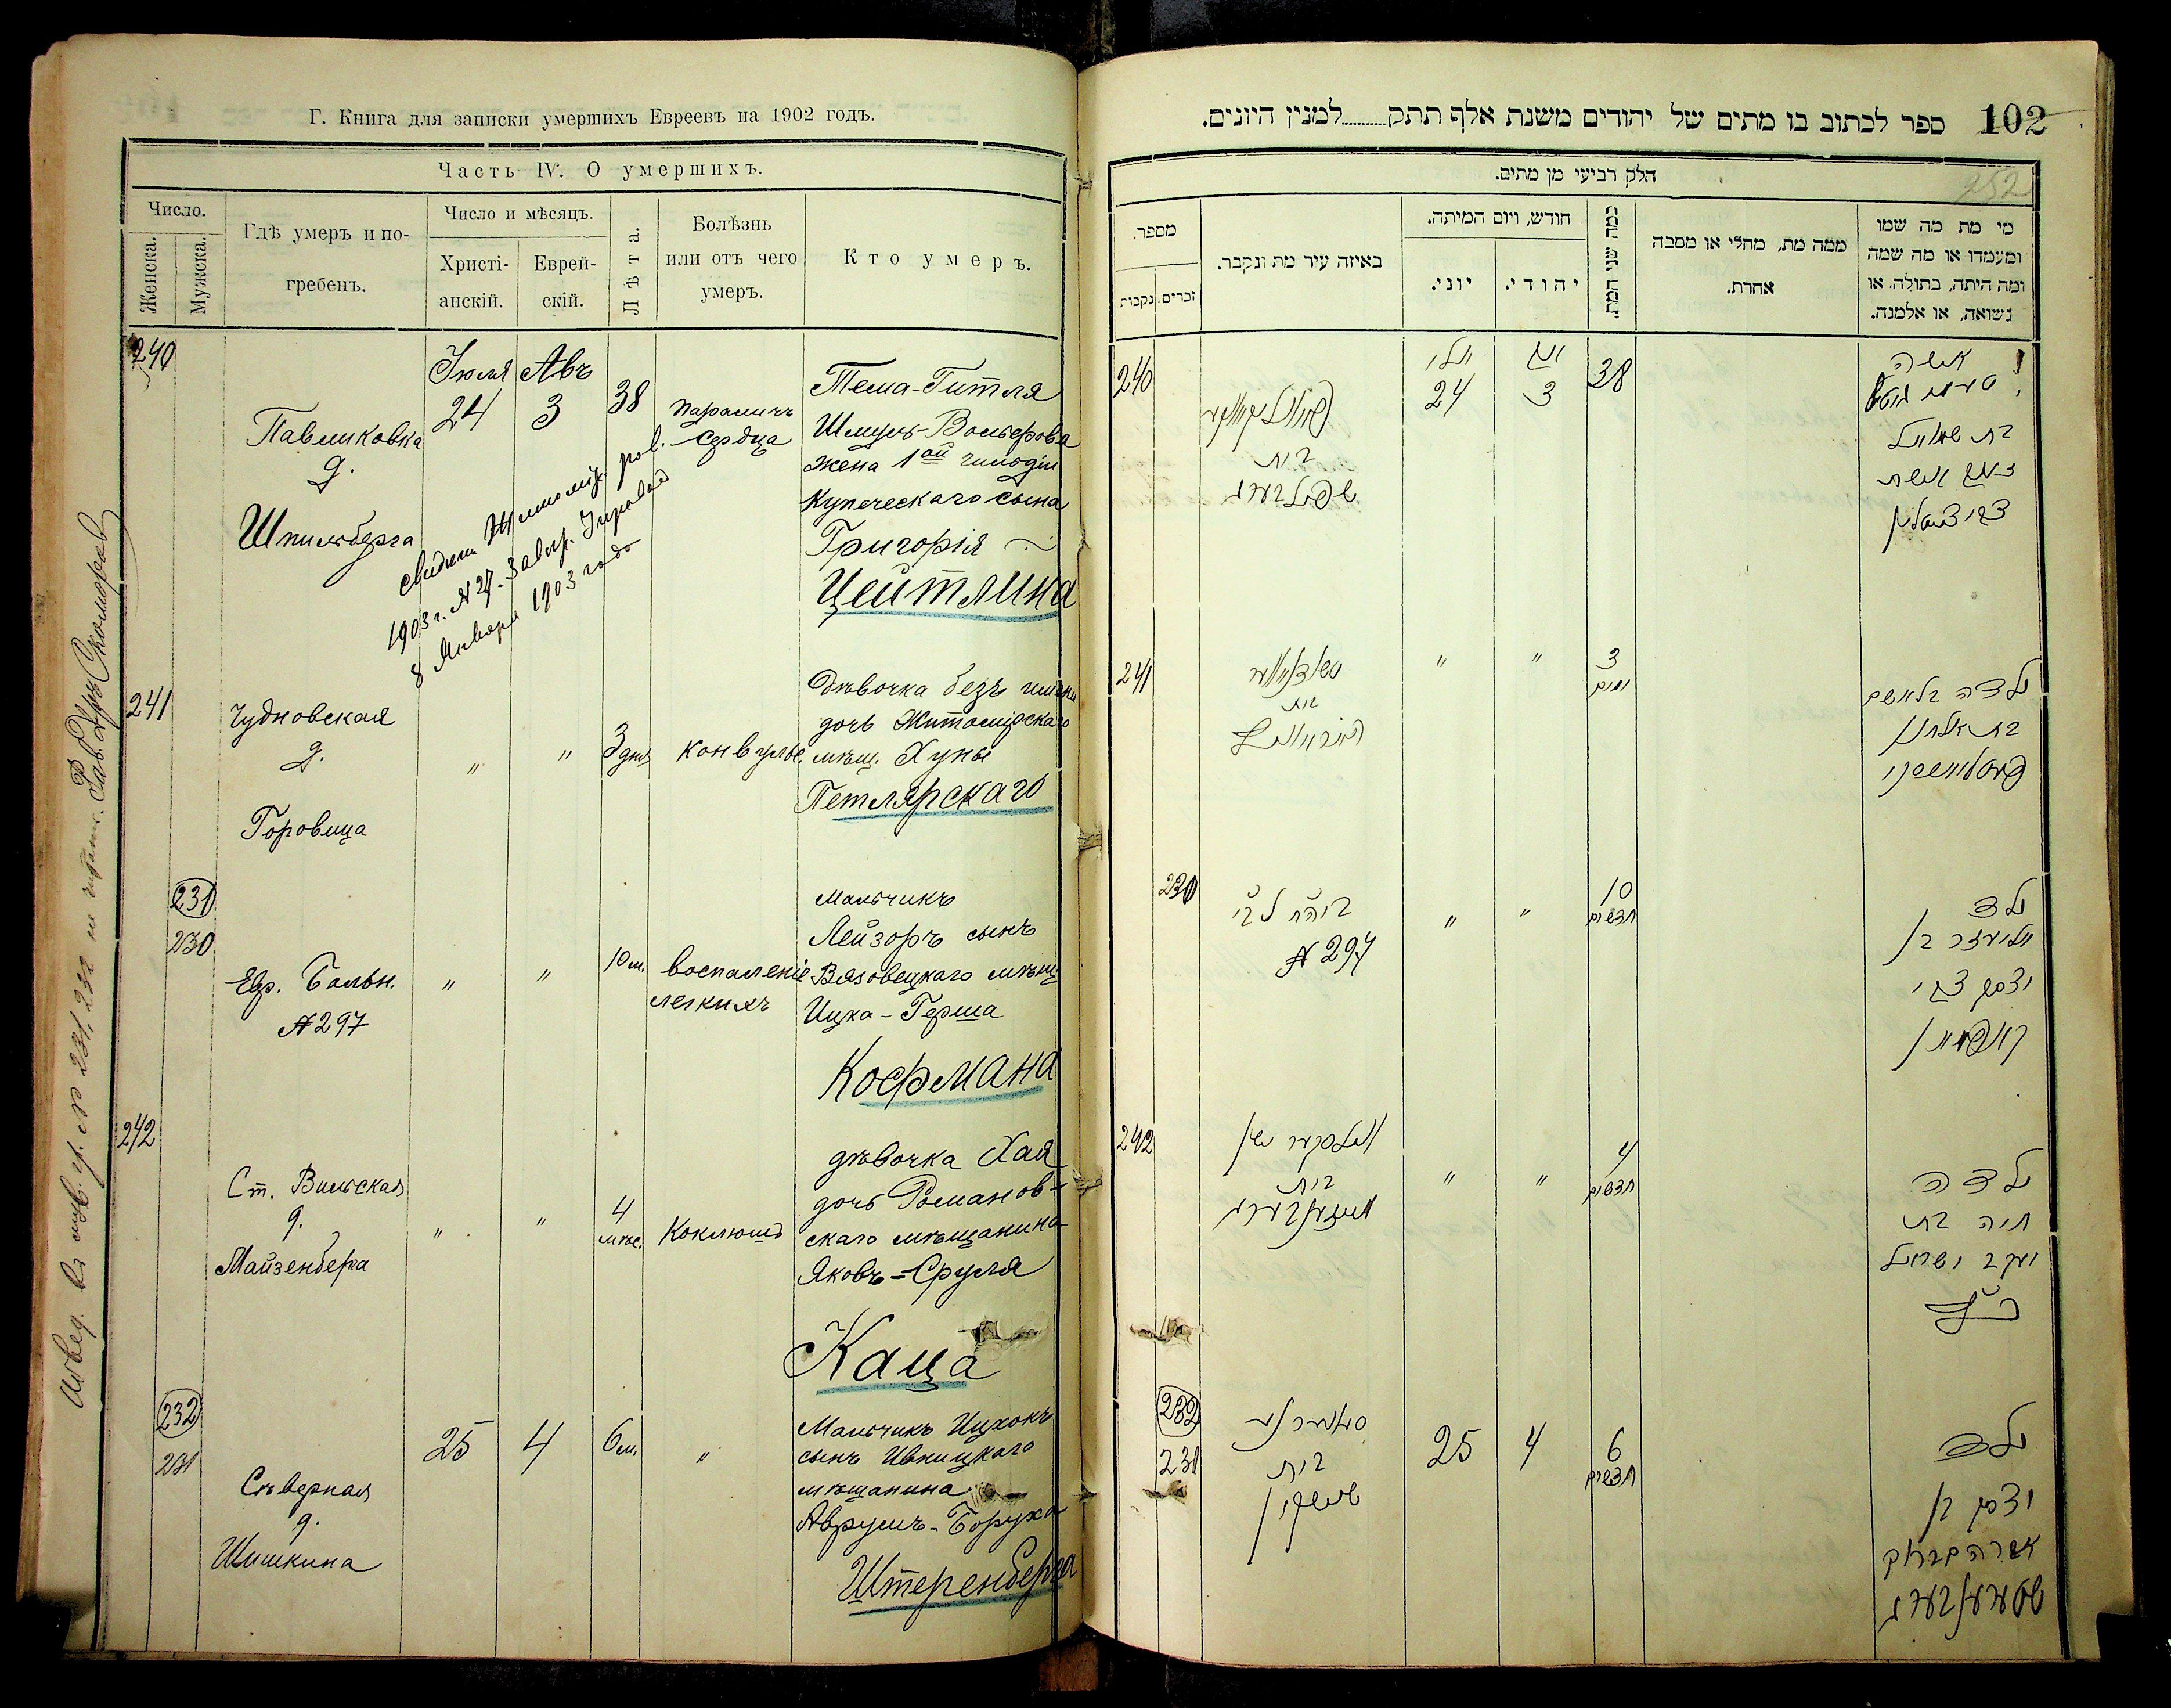 Г. Книга для записки умершихъ Евреевъ на 1902 годъ.
Часть IV. О умершихъ.
Число.
Женска.
Мужска.
Гдѣ умеръ и по-
гребенъ.
Число и мѣсяцъ.
Христі-
анскій.
Еврей-
скій.
Лѣта.
Болѣзнь
или отъ чего
умеръ.
Кто умеръ.
240
Павликовка
д.
Шпильберга
Іюля
24
Авъ
3
38
параличъ
сердца
Тема-Гитля
Шмуль-Вольфова
жена 1ой гильдіи
Купеческаго сына
Григорія
Цейтлина
1903 г. № 27.
8 Января 1903 года
241
Чудновская
д.
Горовица
"
"
3 дня
конвульс.
Дѣвочка безъ имени
дочь Житомірскаго
мѣщ. Хуны
Петлярскаго
231
230
Евр. Больн.
№ 297
"
"
10 м.
воспаленіе
легкихъ
Мальчикъ
Лейзоръ сынъ
Вязовецкаго мѣщ.
Ицка-Герша
Кофмана
242
Ст. Вильская
д.
Майзенберга
"
"
4
мѣс.
Коклюшъ
дѣвочка Хая
дочь Романов-
скаго мѣщанина
Яковъ-Сруля
Каца
232
231
Сѣверная
д.
Шишкина
25
4
6 м.
"
Мальчикъ Ицхокъ
сынъ Ивницкаго
мѣщанина
Аврумъ-Боруха
Штеренберга
102 ספר לכתוב בו מתים של יהודים משנת אלף תתק למנין היונים.
252
חלק רביעי מן מתים.
מספר.
נקבות
זכרים.
באיזה עיר מת ונקבר.
חודש, ויום המיתה.
יוני.
יהודי.
כמה שני המת.
ממה מת, מחלי או מסבה
אחרת.
מי מת מה שמו
ומעמדו או מה שמה
ומה היתה, בתולה או
נשואה, או אלמנה.
240
בית
שפילבערג
יולי
24
אב
3
38
אשה
בת שמואל
זאב אשת
צבי צייטלין
241
בית
"
"
3
ימים
ילדה בלא שם
230
№ 297
"
"
10
חדשים
ילד
אליעזר בן
יצחק צבי
קויפמאן
242
בית
מייזענבערג
"
"
4
חדשים
ילדה
חיה בת
יעקב ישראל
כ"ץ
232
231
בית
שישקין
25
4
6
חדשים
ילד
יצחק בן
אברהם ברוך
שטערענבערג